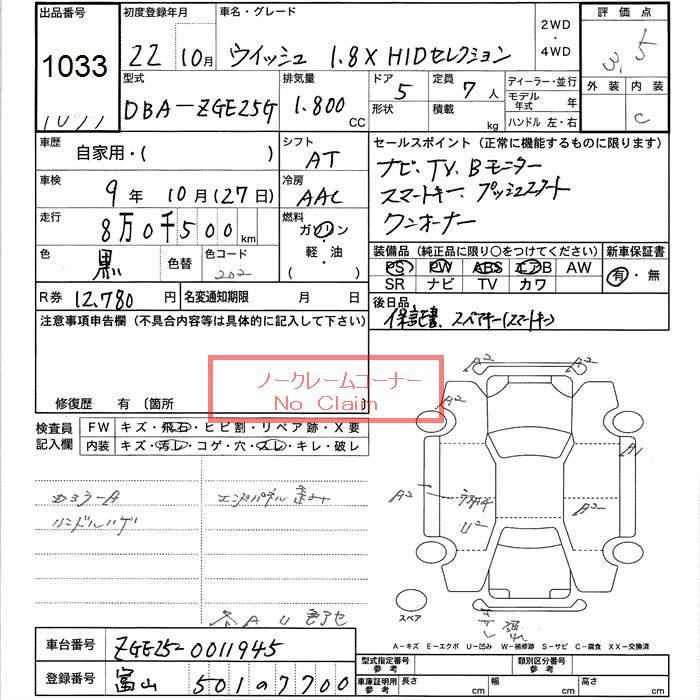 出品番号 初度登録年月 車名・グレード 2WD・4WD 評価点
1033 22 10月 ウイッシュ 1.8X HIDセレクション 3.5
型式 排気量 ドア 定員 ディーラー・並行 外装 内装
DBA-ZGE25G 1.800 CC 5 7人 モデル年式 年 C
形状 積載 kg ハンドル 左・右
車歴 自家用・( ) シフト AT
セールスポイント(正常に機能するものに限ります)
車検 9年 10月(27日) 冷房 AAC
ナビ、TV、Bモニター
スマートキー、プッシュスタート
ワンオーナー
走行 8万0千500km 燃料 ガソリン・軽・油( )
色 黒 色替 色コード 202
装備品(純正品に限り○をつけてください) 新車保証書
PS PW ABS エアB AW 有・無
SR ナビ TV カワ
R券 12,780円 名変通知期限 月 日
後日品
保証書、スペアキー(スマートキー)
注意事項申告欄(不具合内容等は具体的に記入して下さい)
ノークレームコーナー
No Claim
修復歴 有〔箇所
検査員記入欄 FW キズ・飛石・ヒビ割・リペア跡・X要
内装 キズ・汚レ・コゲ・穴・スレ・キレ・破レ
A2 A2
A2 A1
エンドパネル 歪ミ A2 A2
ハンドルハゲ U2
スペア
A-キズ E-エクボ U-凹み W-補修跡 S-サビ C-腐食 XX-交換済
車台番号 ZGE252-0011945
型式指定番号 参考 類別区分番号 参考
登録番号 富山 501 の 7700
車庫証明用 参考 長さ cm 幅 cm 高さ cm